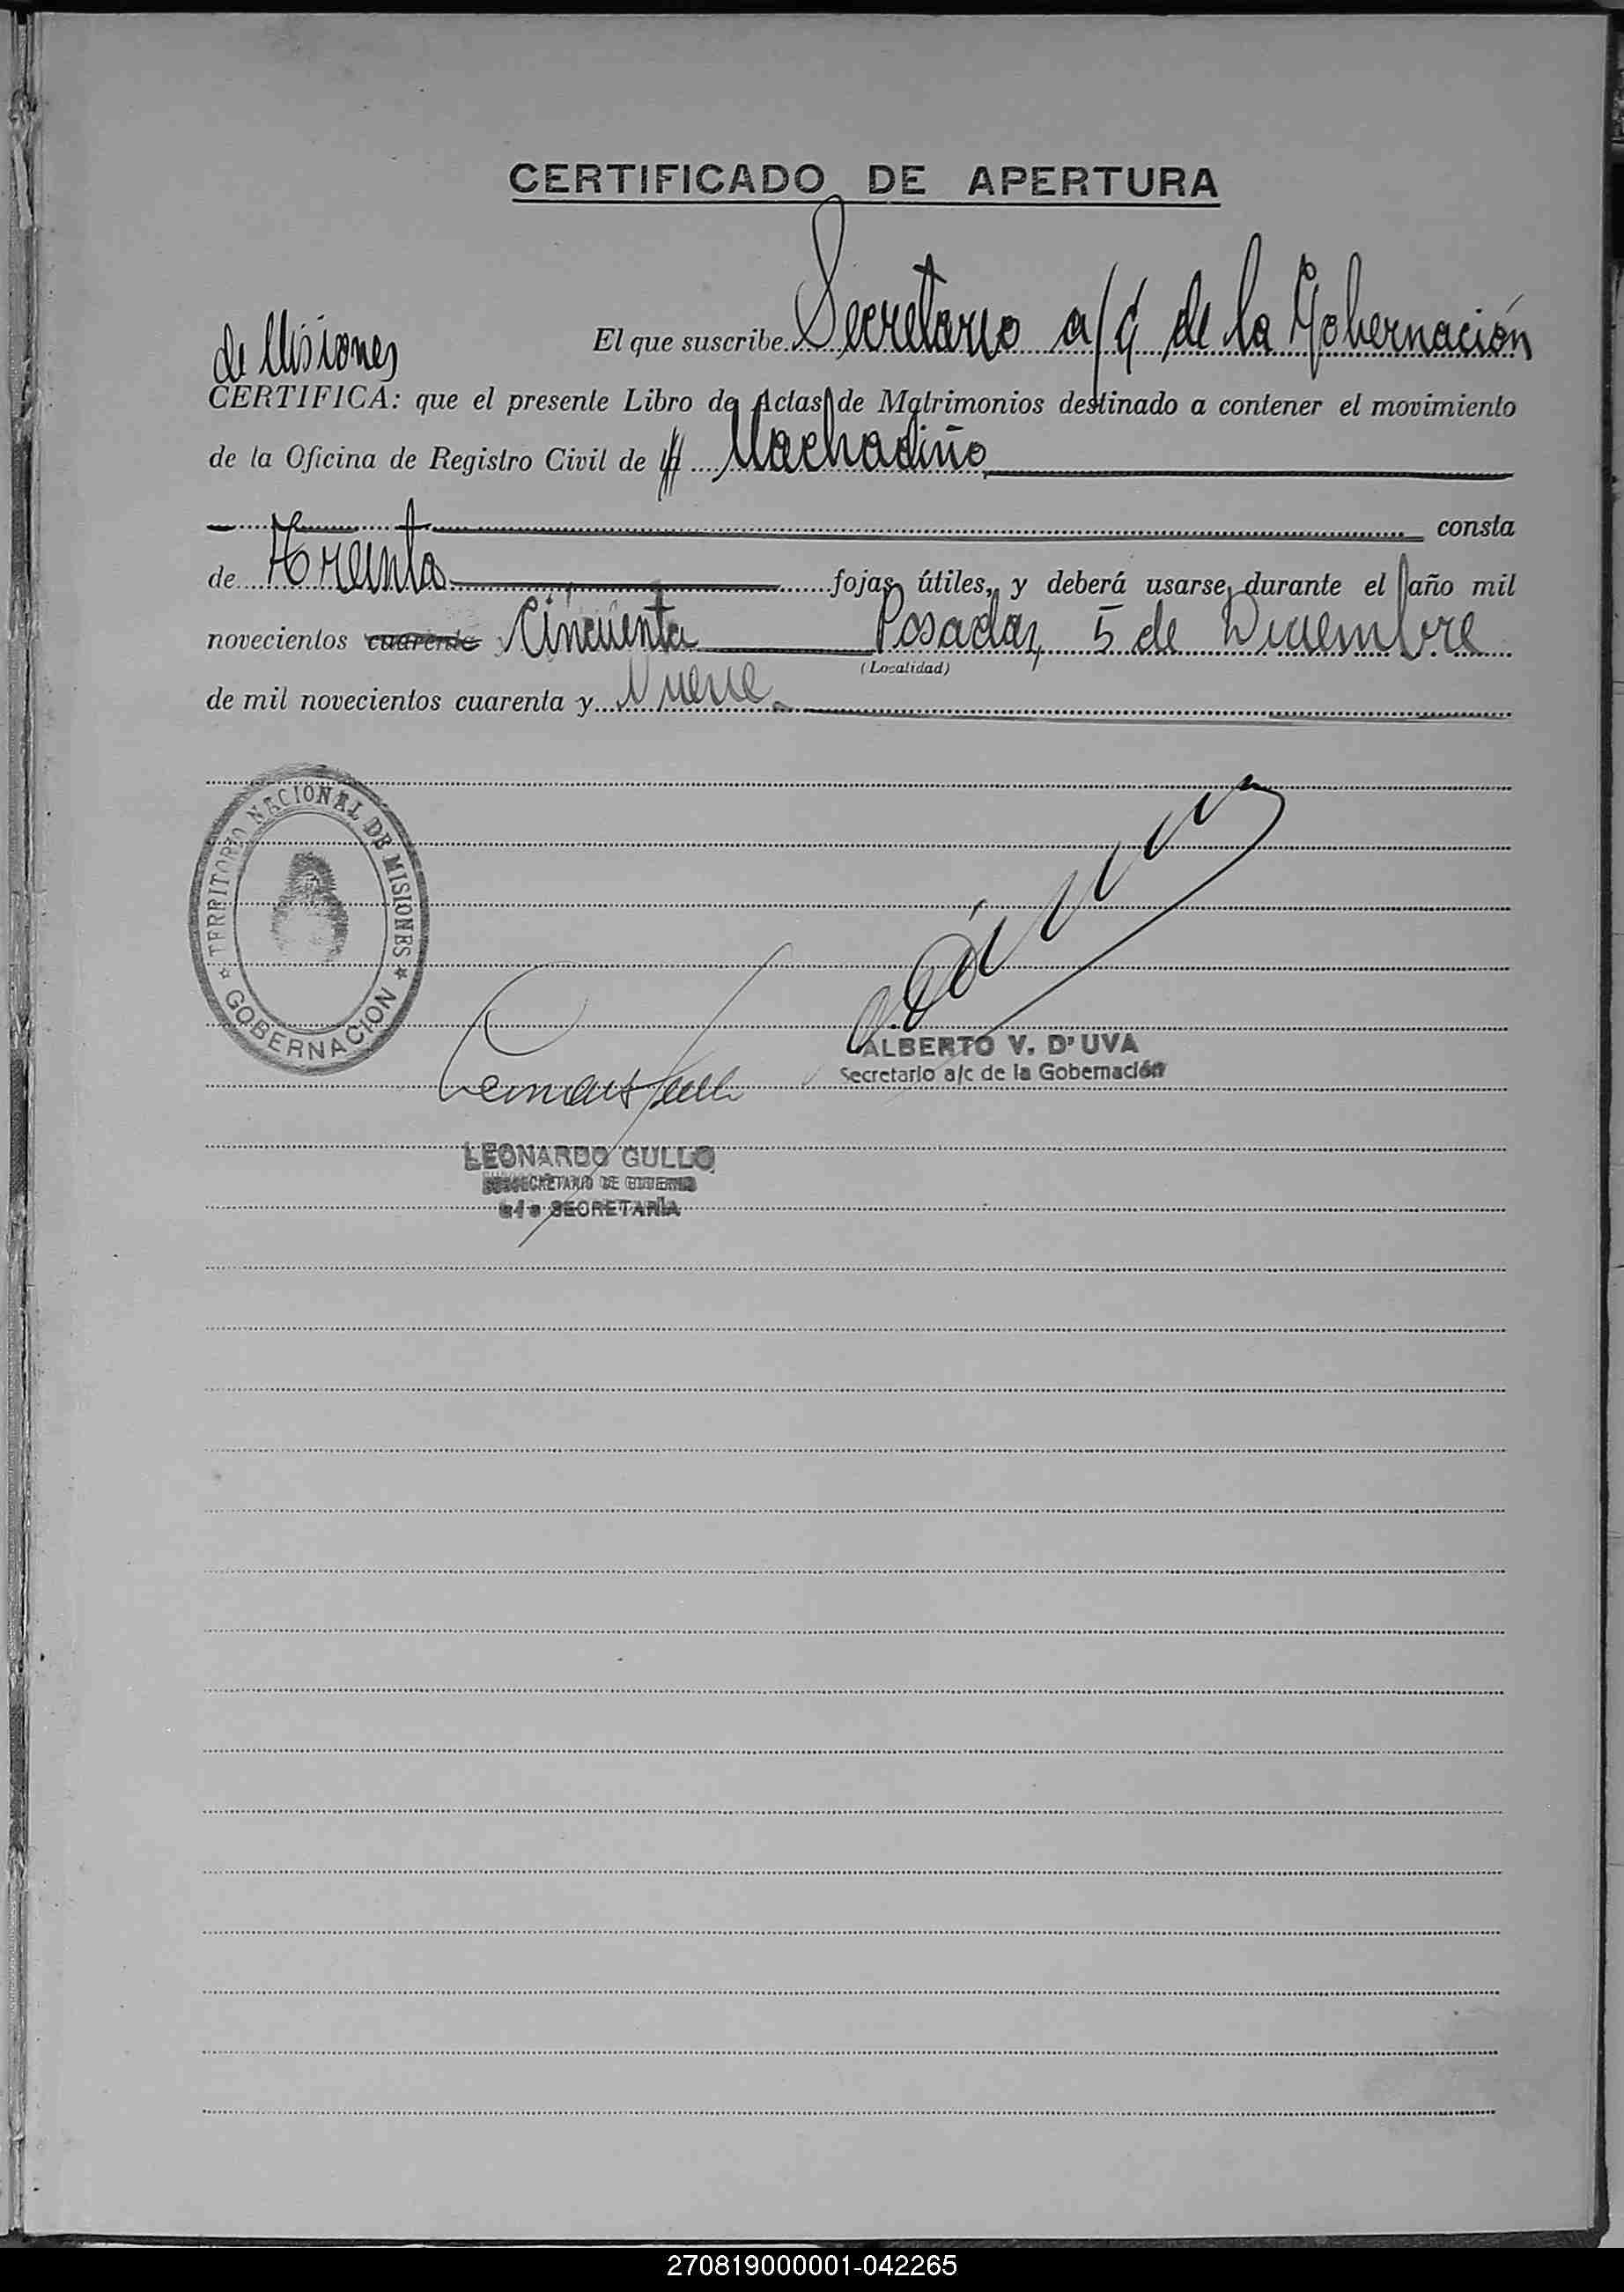 CERTIFICADO DE APERTURA
El que suscribe Secretario a/c de la Gobernación
de Misiones
CERTIFICA: que el presente Libro de Actas de Matrimonios destinado a contener el movimiento
de la Oficina de Registro Civil de Machadiño
consta
de treinta fojas útiles, y deberá usarse durante el año mil
novecientos cuarenta y Cincuenta Posadas, 5 de Diciembre
(Localidad)
de mil novecientos cuarenta y Nueve
TERRITORIO NACIONAL DE MISIONES
GOBERNACION
ALBERTO V. D'UVA
Secretario a/c de la Gobernación
LEONARDO GULLO
SUBSECRETARIO DE GOBIERNO
a/c SECRETARÍA
270819000001-042265